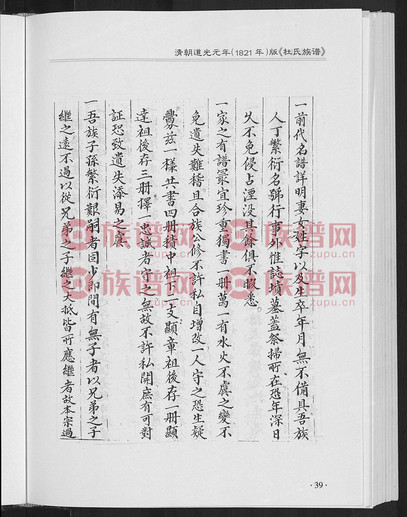 清朝道光元年(1821年)版《杜氏族谱》
一前代名譜詳明妻女姓字以及生卒年月無不備具吾族
人丁繁衍名號行事外惟誌墳墓蓋祭掃所在恐年深日
久不免侵占湮没其餘俱不暇悉
一家之有譜最宜珍重獨書一冊萬一有水火不虞之變不
免遺失難稽且合族公修不許私自增改一人守之恐生疑
釁茲一樣共書四冊積中祠下一支顯章祖後存一冊顯
達祖後存三冊擇一忠誠者守之無故不許私開庶有可對
証恐致遺失添易之
一吾族子孫繁衍艱嗣者固少間有無子者以兄弟之子
繼之遠不過以從兄弟之子繼之大抵皆所應繼者故本宗過
·39·
族谱网
www.zupu.cn